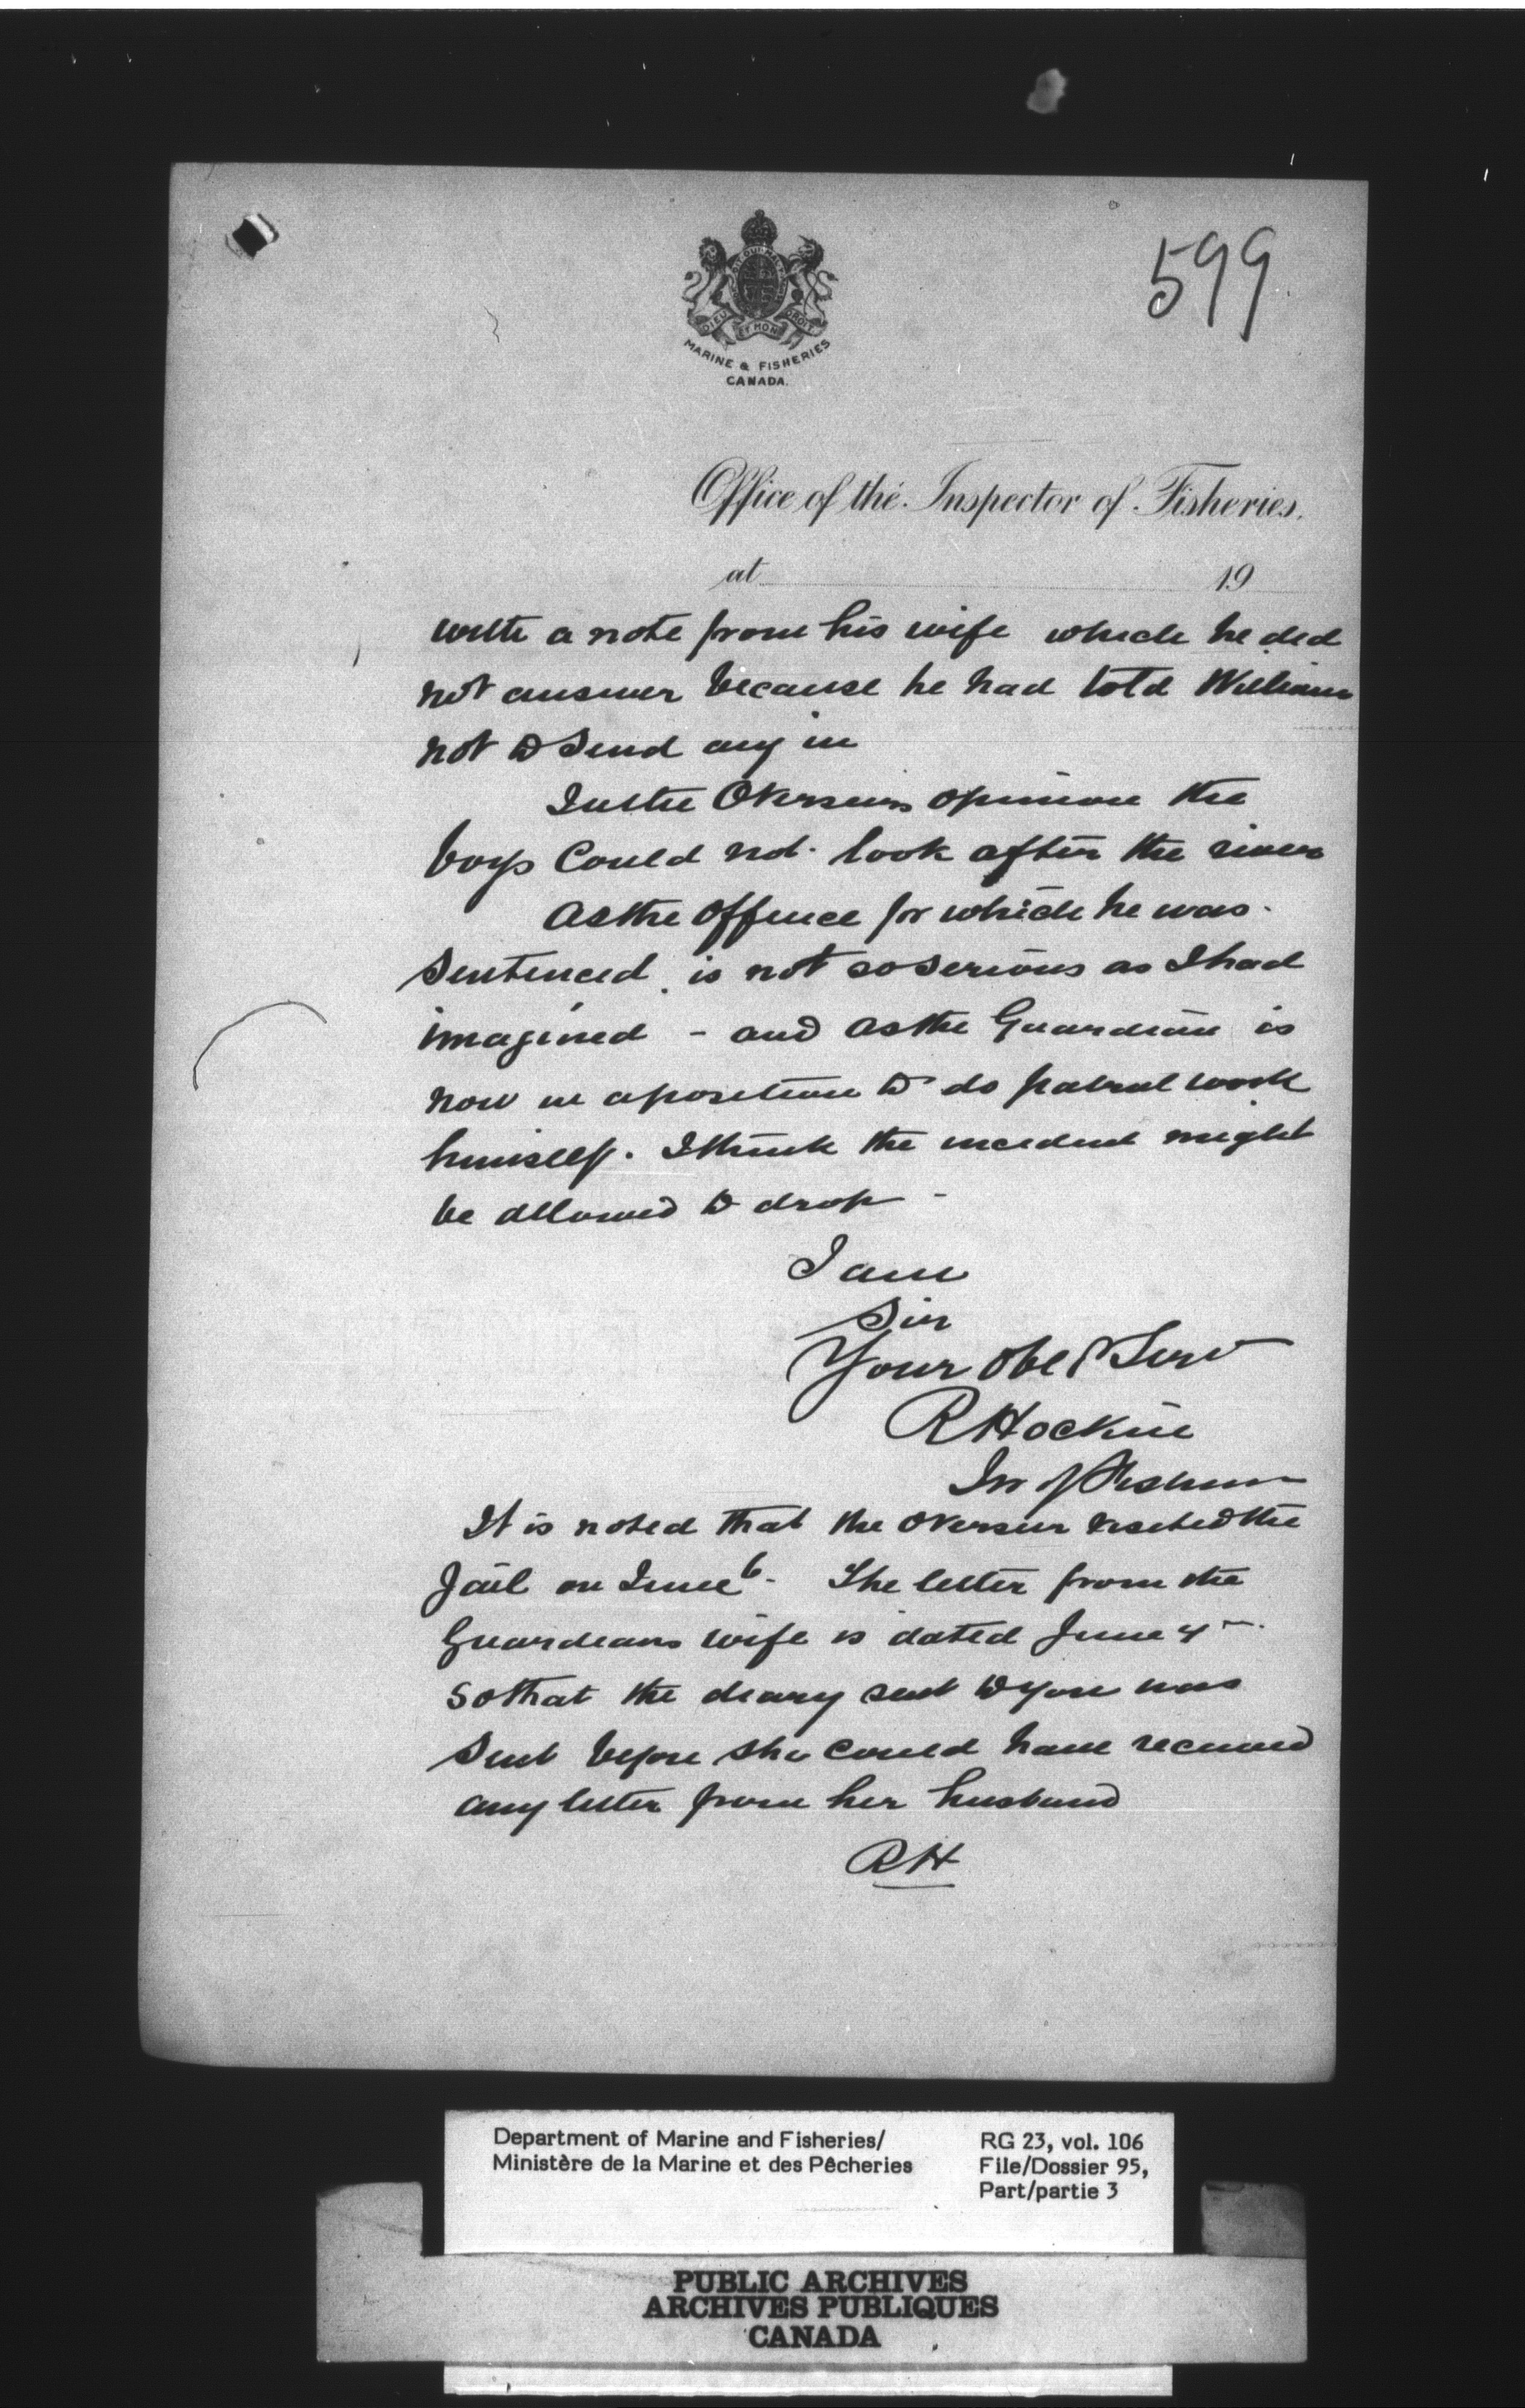 599
DIEU ET MON DROIT
MARINE & FISHERIES
CANADA.
Office of the Inspector of Fisheries.
at 19
with a note from his wife which he did
not answer because he had told William
not to send any in
In the Overseers opinion the
boys could not look after the river
As the offence for which he was
sentenced is not so serious as I had
imagined - and as the Guardian is
now in a position to do patrol work
himself. I think the incident might
be allowed to drop -
I am
Sir
Your obed Serv
R Hockin
In of Fisheries
It is noted that the overseer visited the
Jail on June 6. The letter from the
Guardians wife is dated June 4
So that the diary sent to you was
sent before she could have received
any letter from her husband
RH
Department of Marine and Fisheries/
Ministère de la Marine et des Pêcheries
RG 23, vol. 106
File/Dossier 95,
Part/partie 3
PUBLIC ARCHIVES
ARCHIVES PUBLIQUES
CANADA